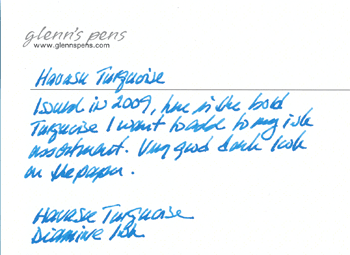 glenn's pens
www.glennspens.com
Havasu Turquoise
Issued in 2009, here is the bold
Turquoise I want to add to my ink
assortment. Very good dark look
on the paper.
Havasu Turquoise
Diamine Ink